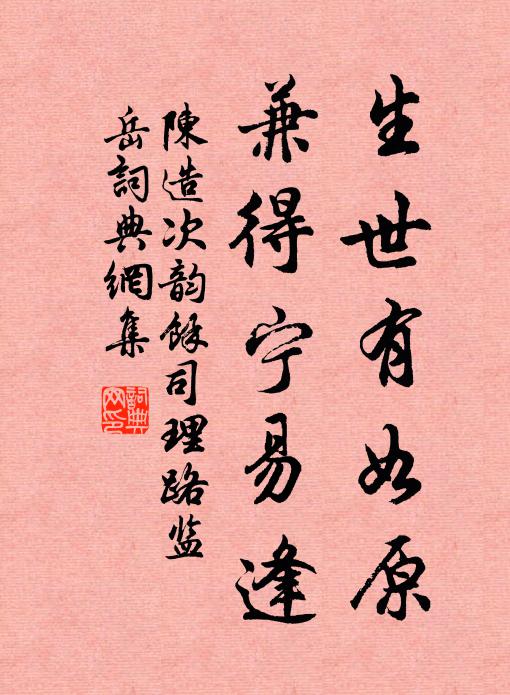 生世有如原
兼得宁易逢
陳造次韵馀司理路监
岳詞典網集
詞典网印